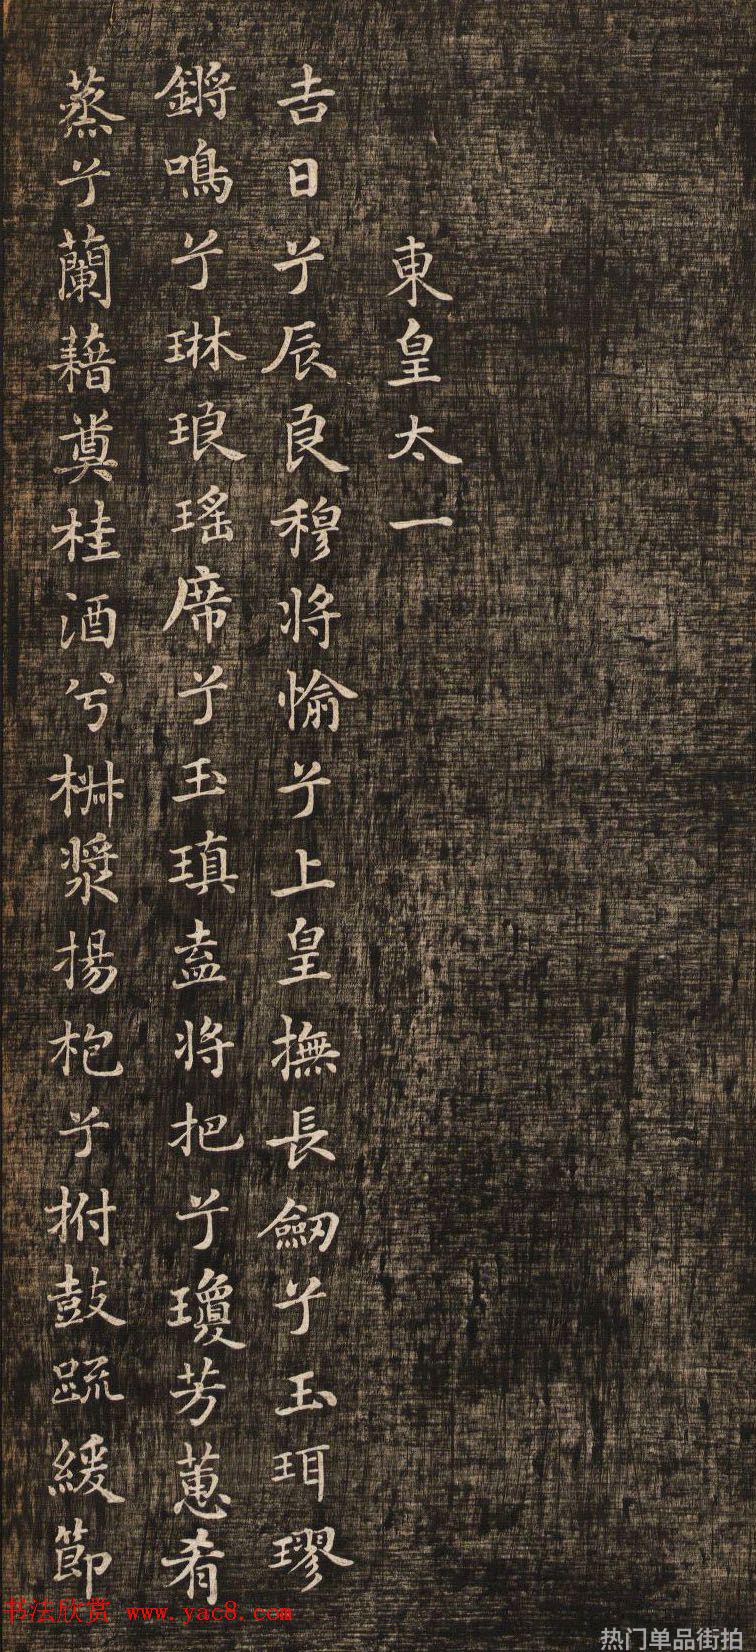 東皇太一
吉日兮辰良穆將愉兮上皇撫長劒兮玉珥璆
鏘鳴兮琳琅瑤席兮玉瑱盍將把兮瓊芳蕙肴
蒸兮蘭藉奠桂酒兮椒漿揚枹兮拊鼓疏緩節
书法欣赏 www.yac8.com
热门单品街拍